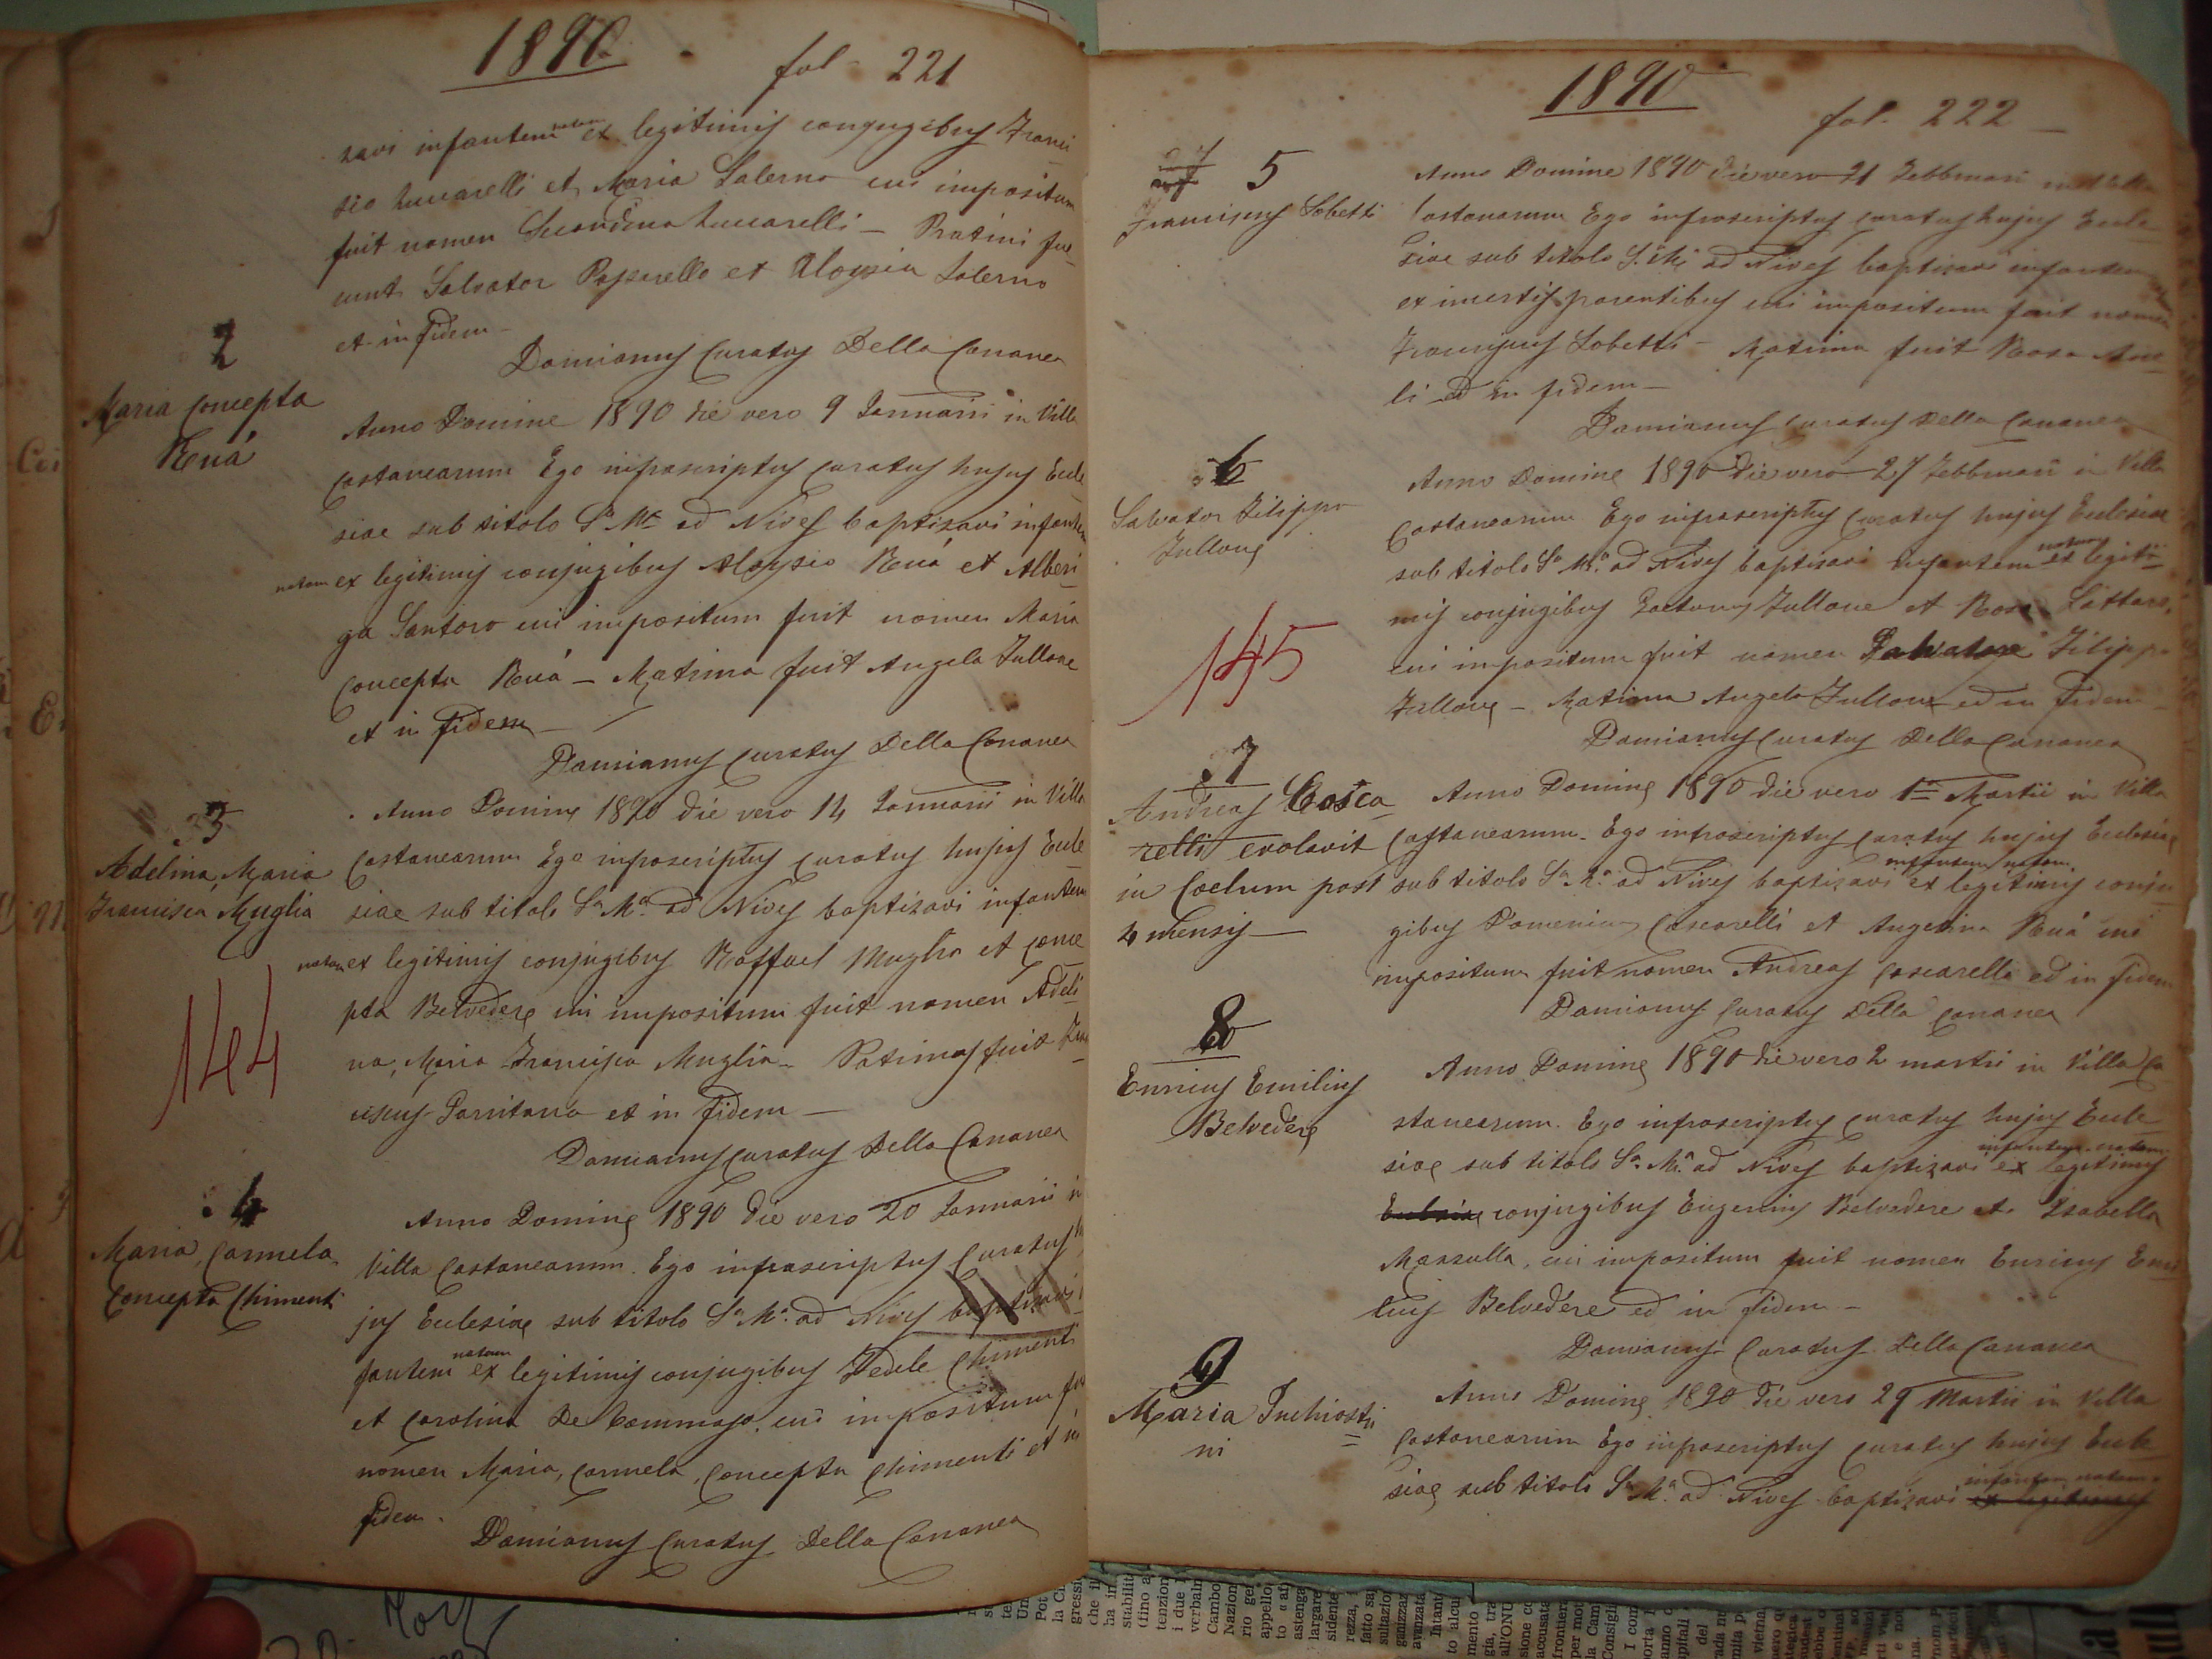 1890
fol - 221
zavi infantem natam ex legitimis conjugibus Franci
sco Luccarelli et Maria Salerno cui impositum
fuit nomen Secondina Luccarelli - Patrini fue
runt Salvator Passarello et Aloysia Salerno
et in fidem -
Damianus Curatus Della Cananea
2
Maria Concepta
Ruá
Anno Domine 1890 die vero 9 Iannuarii in Villa
Castanearum Ego infrascriptus Curatus hujus Eccle
siae sub titolo Sa Ma ad Nives baptizavi infantem
natam ex legitimis conjugibus Aloysio Ruá et Alberi
ga Santoro cui impositum fuit nomen Maria
Concepta Ruá - Matrina fuit Angela Tullone
et in fidem -
Damianus Curatus Della Cananea
3
Adelina, Maria
Francisca Muglia
Anno Domine 1890 die vero 14 Iannuarii in Villa
Castanearum Ego infrascriptus Curatus hujus Eccle
siae sub titolo Sa Ma ad Nives baptizavi infantem
natam ex legitimis conjugibus Raffael Muglia et Conce
pta Belvedere cui impositum fuit nomen Adeli
na, Maria Francisca Muglia - Patrinus fuit Fran
ciscus et in fidem -
Damianus Curatus Della Cananea
144
4
Maria, Carmela
Concepta Chimenti
Anno Domine 1890 die vero 20 Iannuarii in
Villa Castanearum. Ego infrascriptus Curatus hu
jus Ecclesiae sub titolo Sa Ma ad Nives baptizavi in
fantem natam ex legitimis conjugibus Fedele Chimenti
et Carolina De Tommaso, cui impositum fuit
nomen Maria, Carmela, Concepta Chimenti et in
fidem.
Damianus Curatus Della Cananea
1890
fol. 222 -
5
Franciscus Lobetti
Anno Domine 1890 die vero 21 Febbruari in Villa
Castanearum Ego infrascriptus Curatus hujus Eccle
siae sub titolo S. Ma ad Nives baptizavi infantem
ex incertis parentibus cui impositum fuit nomen
Franciscus Lobetti - Matrina fuit Rosa
ed in fidem -
Damianus Curatus Della Cananea
6
Salvator Filippo
Tullone
Anno Domine 1890 die vero 27 Febbruarii in Villa
Castanearum Ego infrascriptus Curatus hujus Ecclesiae
sub titolo Sa Ma ad Nives baptizavi infantem natum ex legiti
mis conjugibus Tullone et Rosa Lattaro,
cui impositum fuit nomen Salvatore Filippo
Tullone - Matrina Angela Tullone ed in fidem -
Damianus Curatus Della Cananea
145
7
Andreas Cosca
relli evolavit
in Coelum post
4 mensis -
Anno Domine 1890 die vero 1º Martii in Villa
Castanearum. Ego infrascriptus Curatus hujus Ecclesiae
sub titolo Sa Ma ad Nives baptizavi infantem natum ex legitimis conju
gibus Domenicus Coscarelli et Angelina Ruá cui
impositum fuit nomen Andreas Coscarelli ed in fidem
Damianus Curatus Della Cananea
8
Enricus Emilius
Belvedere
Anno Domine 1890 die vero 2 martii in Villa Ca
stanearum. Ego infrascriptus Curatus hujus Eccle
siae sub titolo Sa Ma ad Nives baptizavi infantem natum ex legitimis
Ecclesiae conjugibus Eugenius Belvedere et Isabella
Marsulla, cui impositum fuit nomen Enricus Emi
lius Belvedere ed in fidem -
Damianus Curatus Della Cananea
9
Maria Inchiostri
ni
Anno Domine 1890 die vero 29 Martii in Villa
Castanearum Ego infrascriptus Curatus hujus Eccle
siae sub titolo Sa Ma ad Nives baptizavi infantem natam ex legitimis